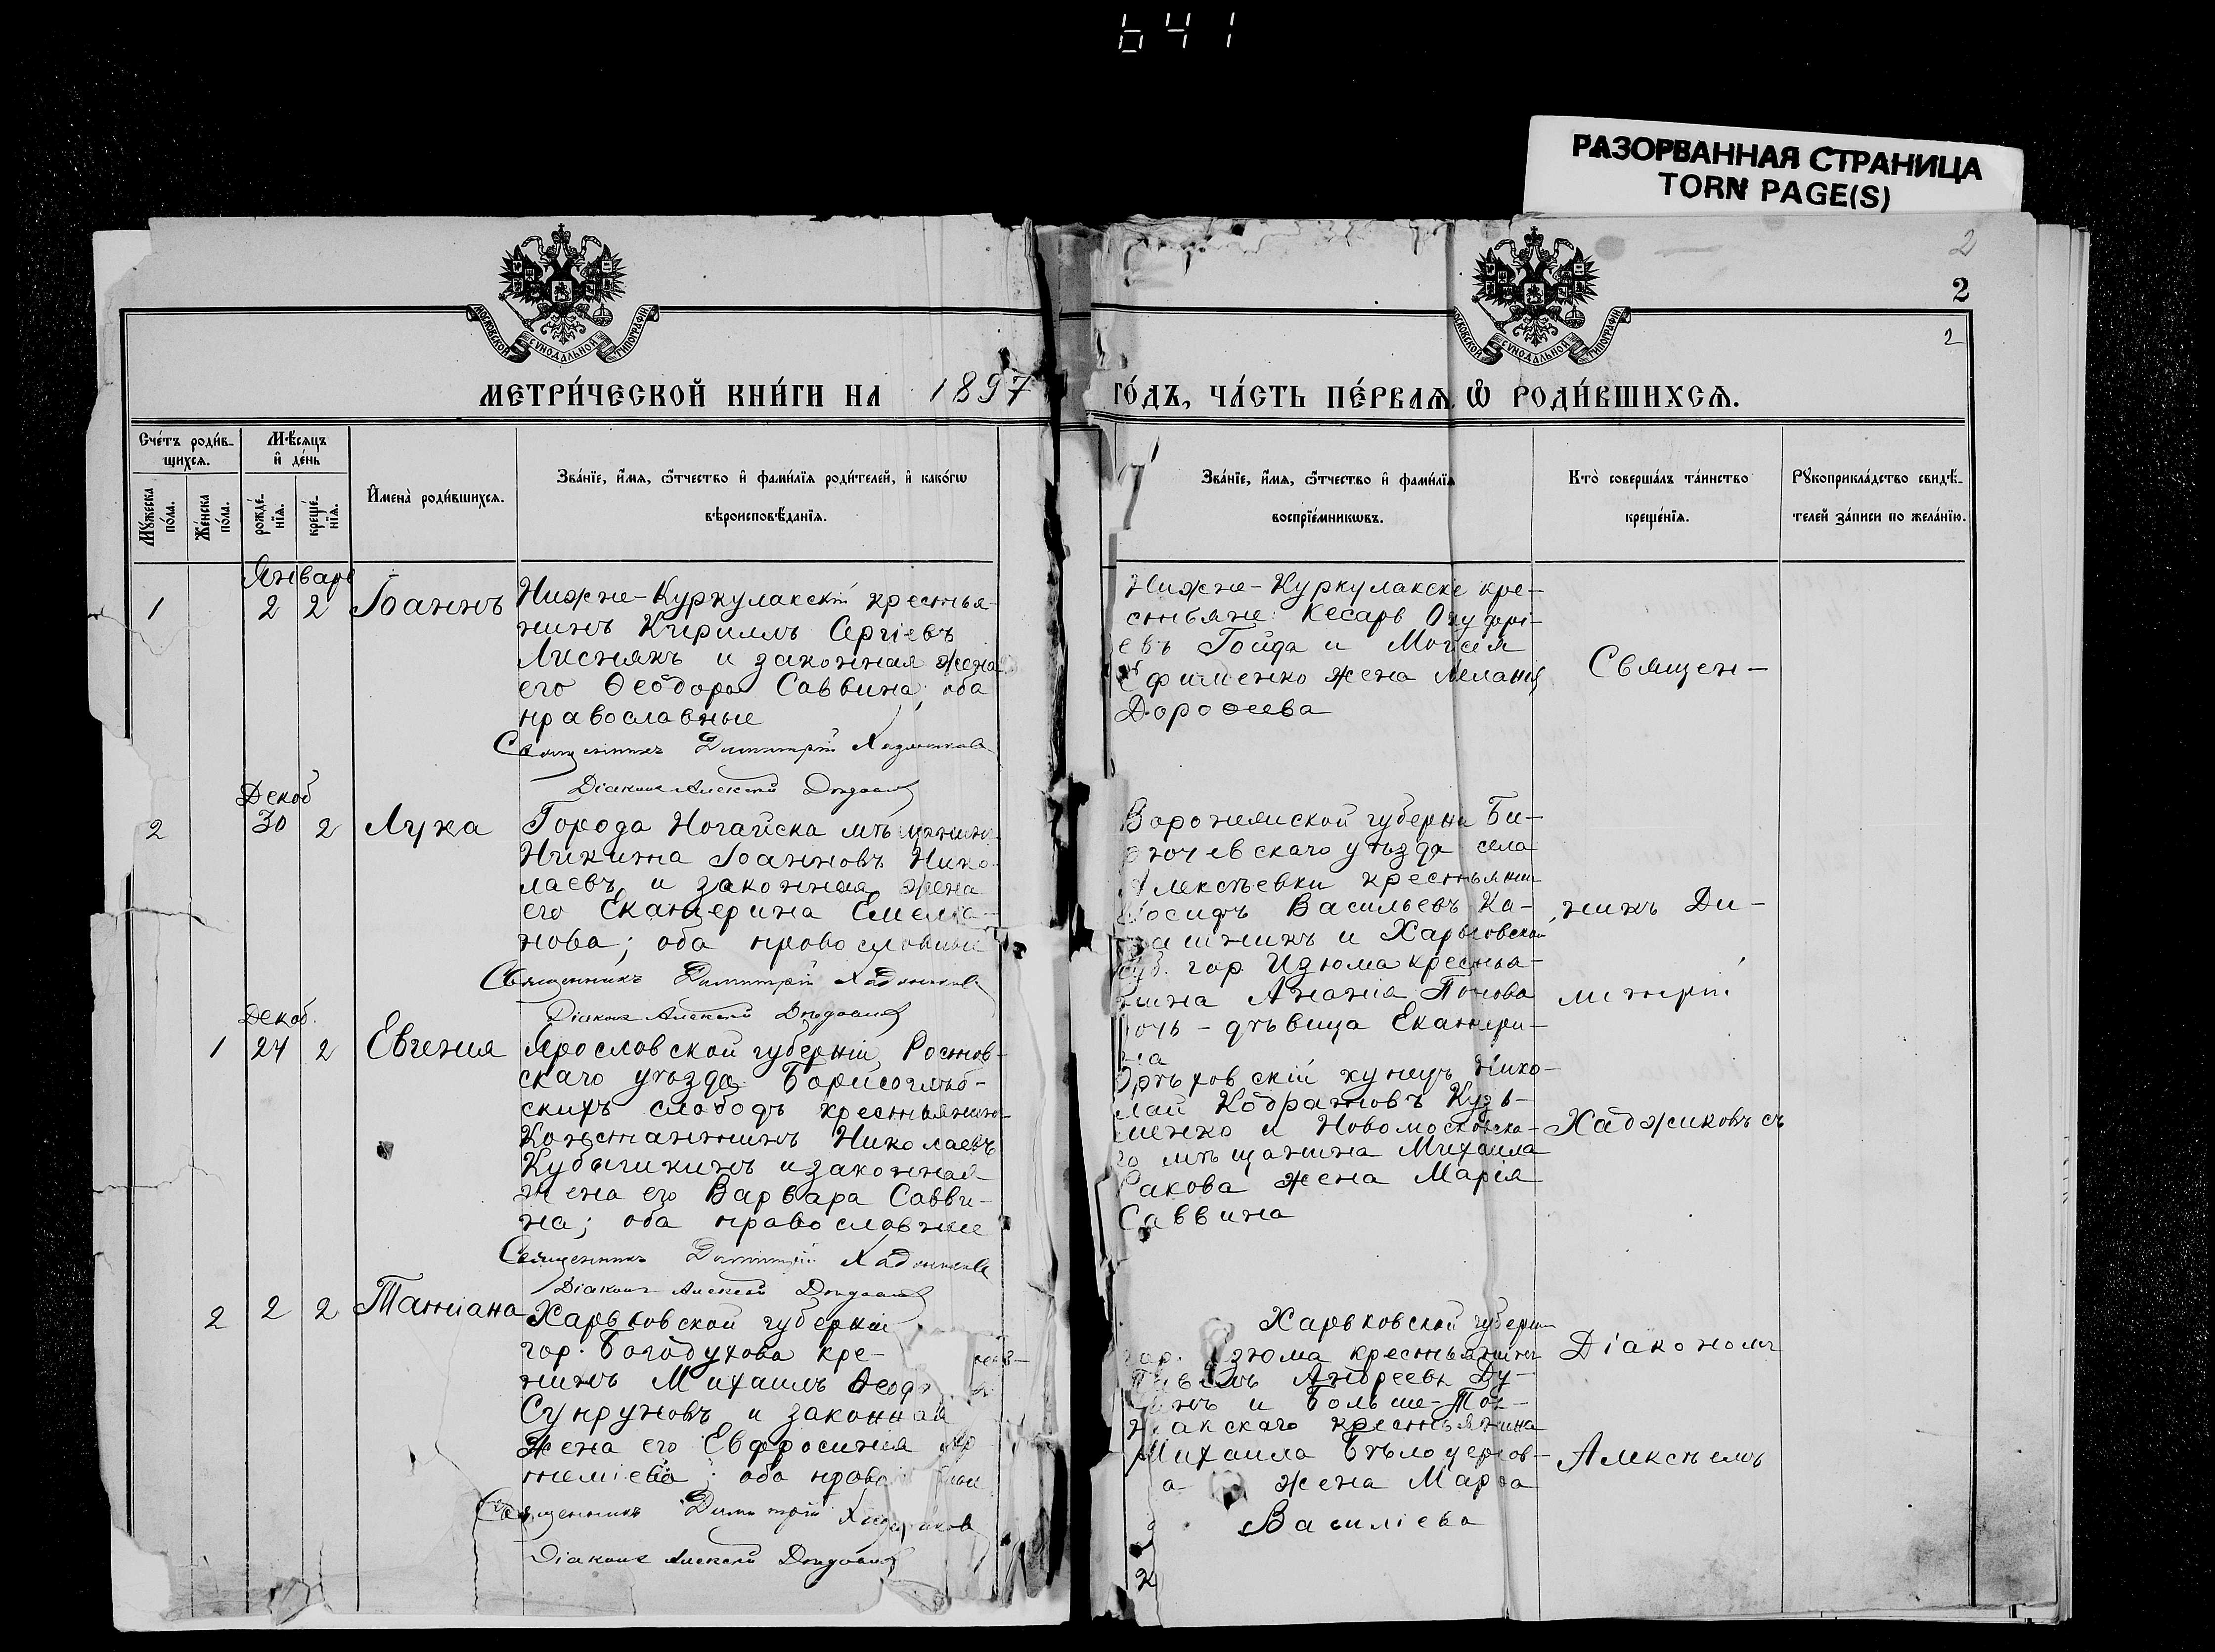 641
РАЗОРВАННАЯ СТРАНИЦА
TORN PAGE(S)
2
2
2
МОСКОВСКОЙ СУНОДАЛЬНОЙ ТИПОГРАФІИ
МОСКОВСКОЙ СУНОДАЛЬНОЙ ТИПОГРАФІИ
МЕТРИ́ЧЕСКОЙ КНИ́ГИ НА 1897 ГО́ДЪ, ЧА́СТЬ ПЕ́РВАЯ Ѡ РОДИ́ВШИХСЯ.
Сче́тъ роди́в-
щихся.
Мѣ́сяцъ
и҆ де́нь
Мꙋ́жеска по́ла.
Же́нска по́ла.
рожде́-
нїя.
креще́-
нїя.
И҆мена̀ роди́вшихся.
Зва́нїе, и҆́мя, ѻ҆́тчество и҆ фами́лїя роди́телей, и҆ како́гѡ
вѣроисповѣ́данїя.
Зва́нїе, и҆́мя, ѻ҆́тчество и҆ фами́лїя
воспрїе́мникѡвъ.
Кто̀ соверша́лъ та́инство
креще́нїя.
Рꙋкоприкла́дство свидѣ́-
телей за́писи по жела́нїю.
Январь
1 2 2 Іоаннъ
Нижне-Куркулакскій крестья-
нинъ Кириллъ Сергіевъ
Лиснякъ и законная жена
его Ѳеодора Саввина; оба
православные
Священникъ Димитрій Хаджиковъ
Діаконъ Алексій
Нижне-Куркулакскіе кре-
стьяне: Кесарь Онуфрі-
евъ Гойда и Моисея
Ефименко жена Меланія
Дороѳеева
Священ-
Декаб
2 30 2 Лука
Города Ногайска мѣщанинъ
Никита Іоанновъ Нико-
лаевъ и законная жена
его Екатерина Емелія-
нова; оба православные
Священникъ Димитрій Хаджиковъ
Діаконъ Алексій
Воронежской губерніи Би-
рючевскаго уѣзда села
Алексѣевки крестьянинъ
Іосифъ Васильевъ Ка-
шникъ и Харьковской
губ. гор. Изюма крестья-
нина Ананія Попова
дочь - дѣвица Екатери-
на
никъ Ди-
митрій
Декаб.
1 24 2 Евгенія
Ярославской губерніи, Ростов-
скаго уѣзда Борисоглѣб-
скихъ слободъ крестьянинъ
Константинъ Николаевъ
Кубышкинъ и законная
жена его Варвара Савви-
на; оба православные
Священникъ Димитрій Хаджиковъ
Діаконъ Алексій
Орѣховскій купецъ Нико-
лай Кодратовъ Кузь-
менко и Новомосковска-
го мѣщанина Михаила
Ракова жена Марія
Саввина
Хаджиковъ съ
2 2 2 Татіана
Харьковской губерніи
гор. Богодухова кре-
нинъ Михаилъ Ѳеод
Супруновъ и законная
жена его Евфросинія Ар
теміева; оба прав
Священникъ Димитрій Хаджиковъ
Діаконъ Алексій
Харьковской губерніи
гор. Изюма крестьянинъ
Павелъ Андреевъ Ду-
и Больше-Ток-
макскаго крестьянина
Михаила Бѣлоцерков-
жена Марѳа
Василіева
Діакономъ
Алексѣемъ